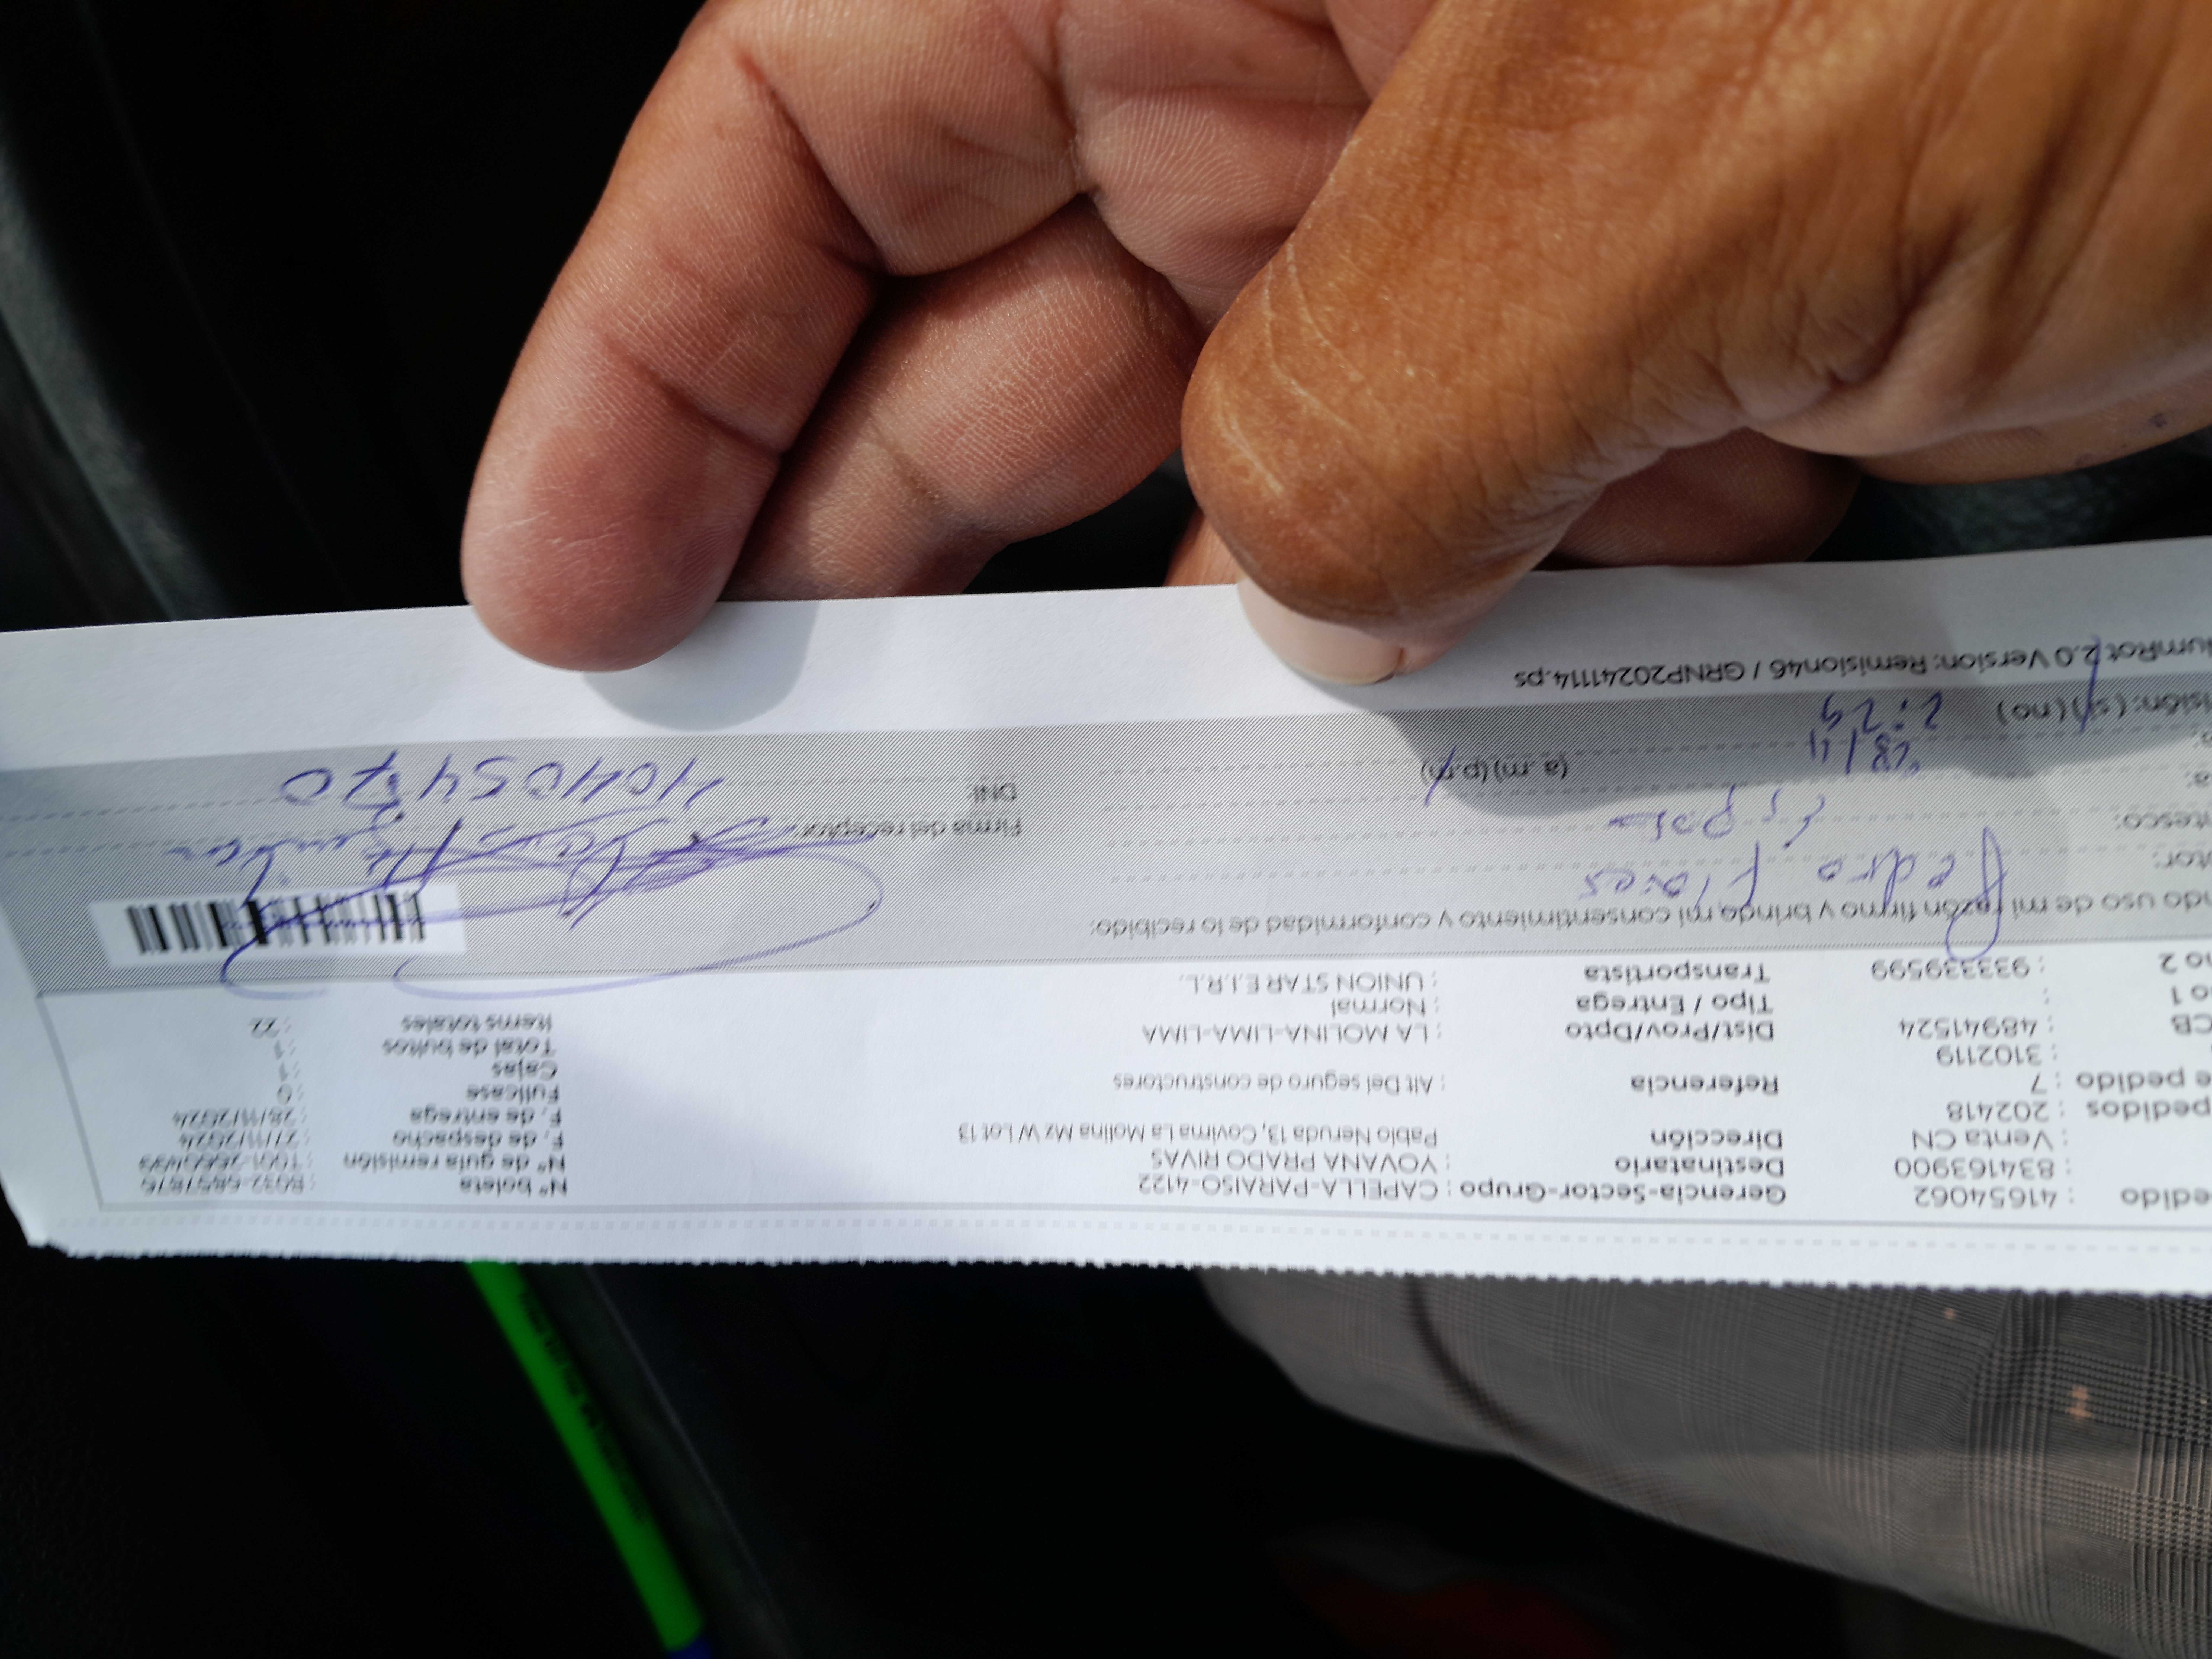 edido : 41654062 Gerencia-Sector-Grupo : CAPELLA-PARAISO-4122 N° boleta
: 834163900 Destinatario : YOVANA PRADO RIVAS N° de guía remisión
: Venta CN Dirección Pablo Neruda 13, Covima La Molina Mz W Lot 13 F. de despacho : 27/11/2024
pedidos : 202418 F. de entrega : 28/11/2024
e pedido : 7 Referencia : Alt Del seguro de constructores Fullcase : 0
: 3102119 Cajas : 1
CB : 48941524 Dist/Prov/Dpto : LA MOLINA-LIMA-LIMA Total de bultos : 1
no 1 : Tipo / Entrega : Normal Items totales : 22
no 2 : 933339599 Transportista : UNION STAR E.I.R.L.
ndo uso de mi razón firmo y brindo mi consentimiento y conformidad de lo recibido:
tor: Pedro Flores
ntesco: Esposo Firma del receptor:
a: 28/11 DNI: 40405470
: 2:29 (a.m) (p.m)
isión: (si) (no)
umRot 2.0 Version: Remision46 / GRNP20241114.ps